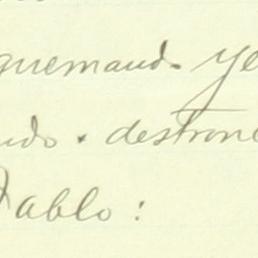 quemand. ye
ndo. destron
Pablo: